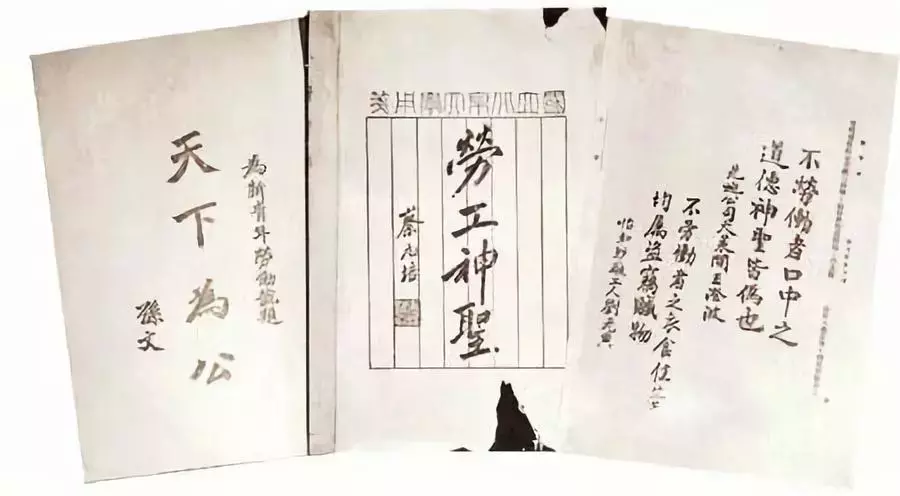 為新青年勞動號題
天下為公
孫文
國立北京大學用箋
勞工神聖
蔡元培
不勞働者口中之
道德神聖皆僞也
先施公司大菜間王澄波
不勞働者之衣食住等
均屬盜竊贓物
怡和紗廠工人劉